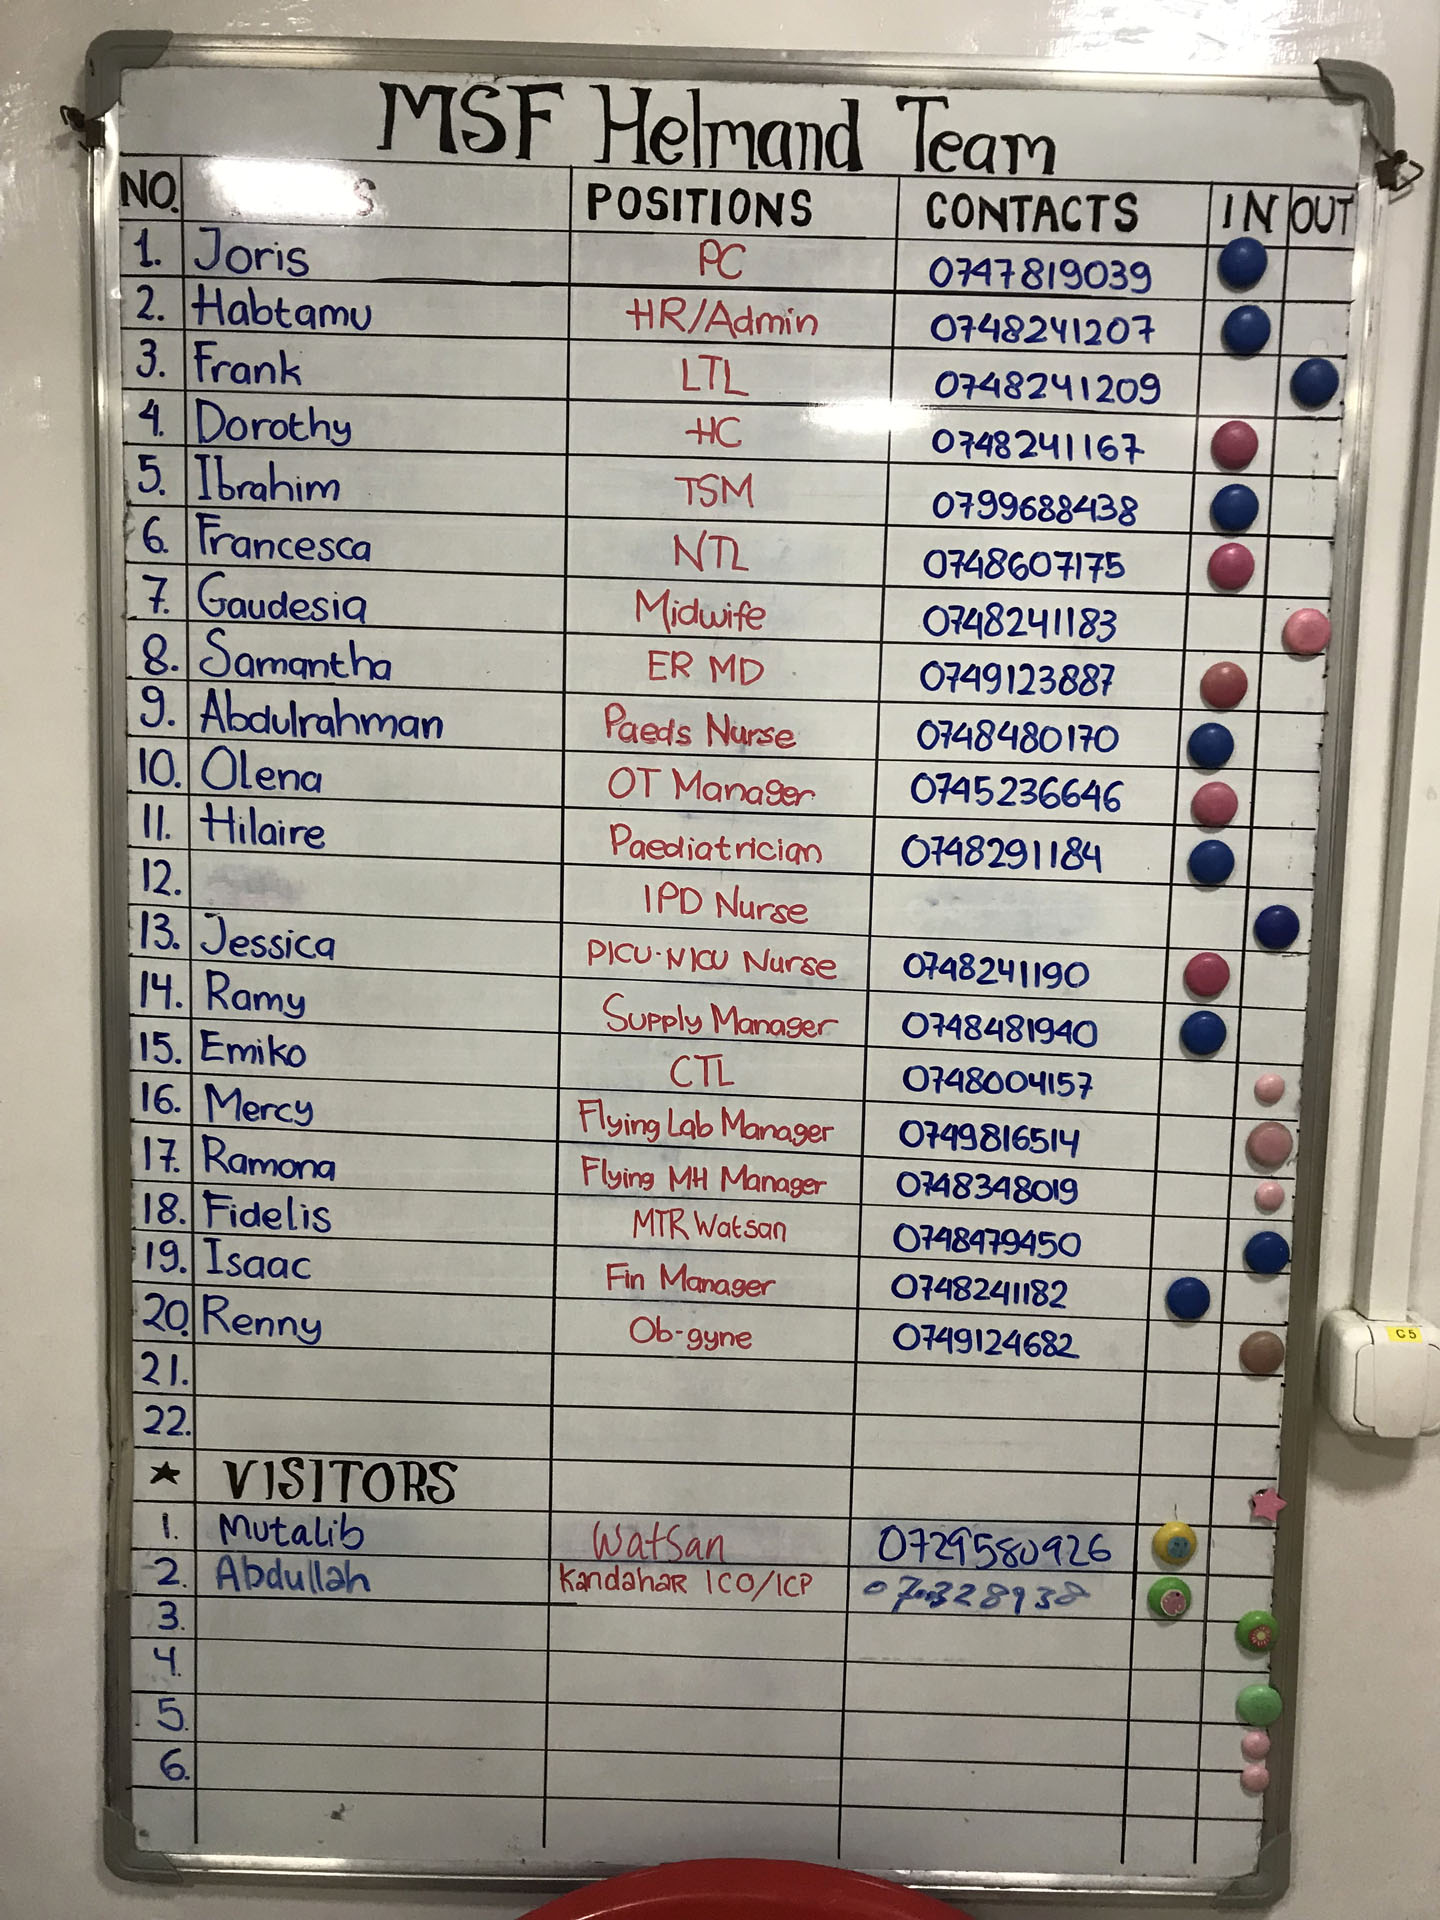 MSF Helmand Team
NO. POSITIONS CONTACTS IN OUT
1. Joris PC 0747819039
2. Habtamu HR/Admin 0748241207
3. Frank LTL 0748241209
4. Dorothy HC 0748241167
5. Ibrahim TSM 0799688438
6. Francesca NTL 0748607175
7. Gaudesia Midwife 0748241183
8. Samantha ER MD 0749123887
9. Abdulrahman Paeds Nurse 0748480170
10. Olena OT Manager 0745236646
11. Hilaire Paediatrician 0748291184
12. IPD Nurse
13. Jessica PICU-NICU Nurse 0748241190
14. Ramy Supply Manager 0748481940
15. Emiko CTL 0748004157
16. Mercy Flying Lab Manager 0749816514
17. Ramona Flying MH Manager 0748348019
18. Fidelis MTR Watsan 0748479450
19. Isaac Fin Manager 0748241182
20. Renny Ob-gyne 0749124682
21.
22.
★ VISITORS
1. Mutalib Watsan 0729580926
2. Abdullah Kandahar ICO/ICP
3.
4.
5.
6.
C5